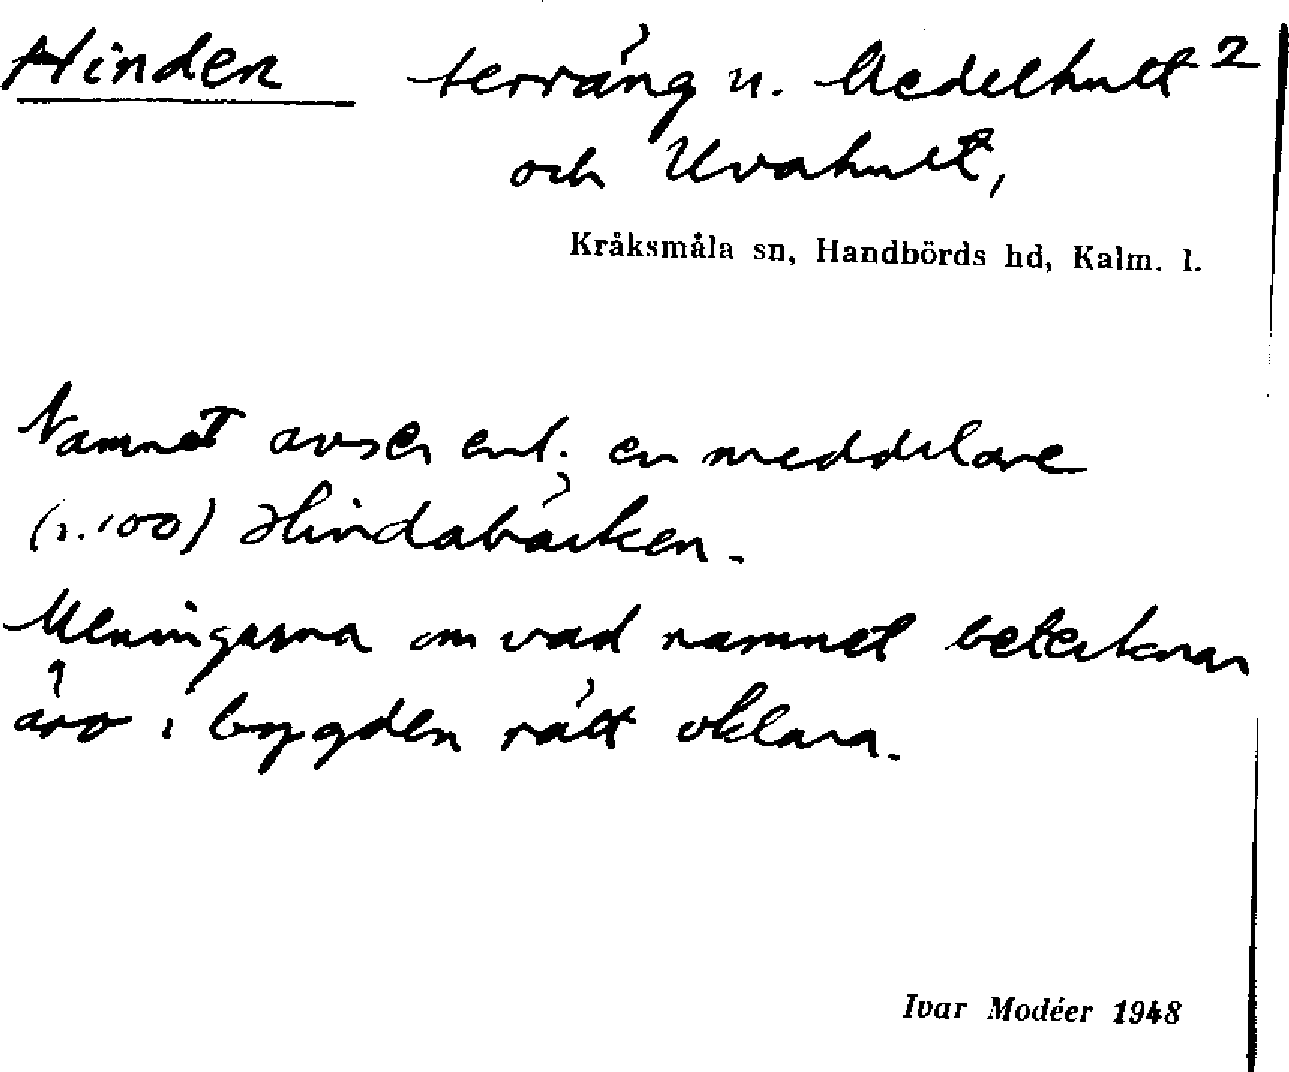 Hinden terräng n. Medelhult 2
och Uvahult,
Kråksmåla sn, Handbörds hd, Kalm. l.
Namnet avser enl. en meddelare
(s. 100) Hindabäcken.
Meningarna om vad namnet betecknar
äro i bygden rätt oklara.
Ivar Modéer 1948